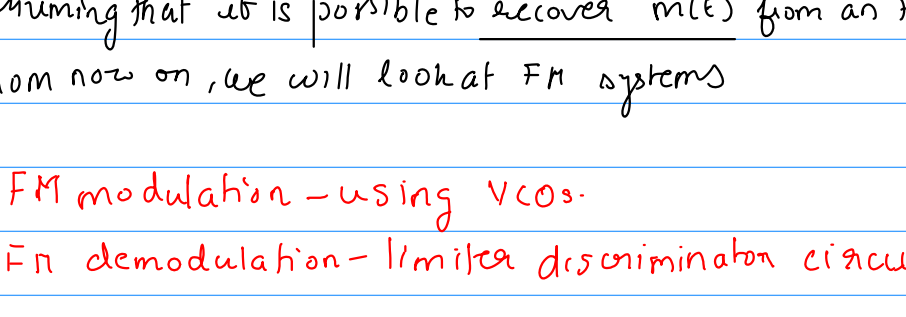 that it is possible to recover m(t) from an
om now on, we will look at FM systems
FM modulation - using VCOs.
FM demodulation - limiter discriminator circu